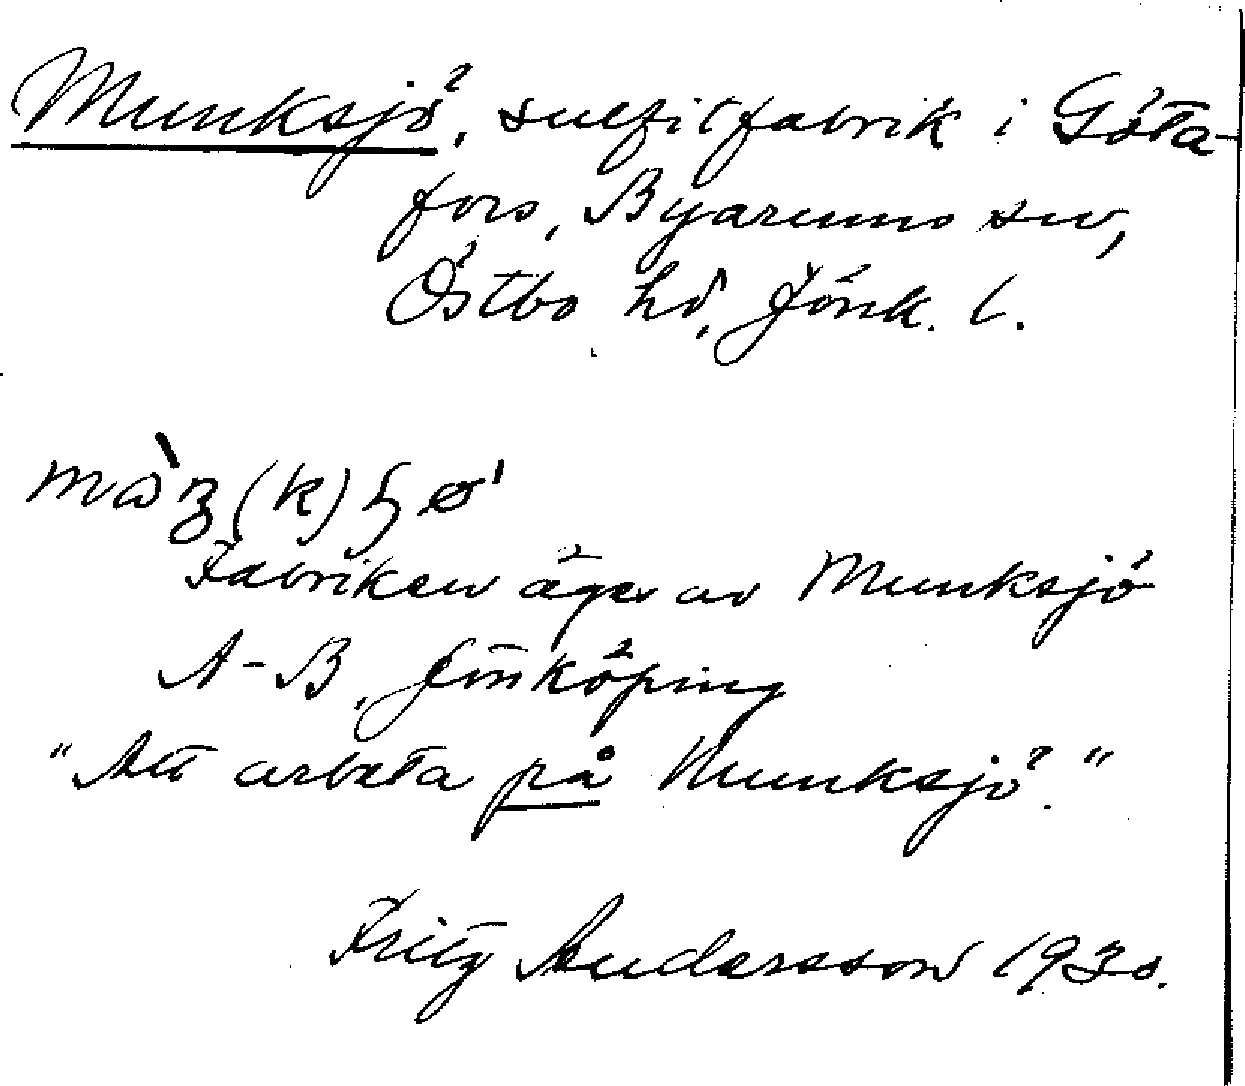 Munksjö, sulfitfabrik i Göta-
fors, Byarums sn,
Östbo hd, Jönk. l.
Fabriken äges av Munksjö
A-B, Jönköping
"Att arbeta på Munksjö."
Fritz Andersson 1930.